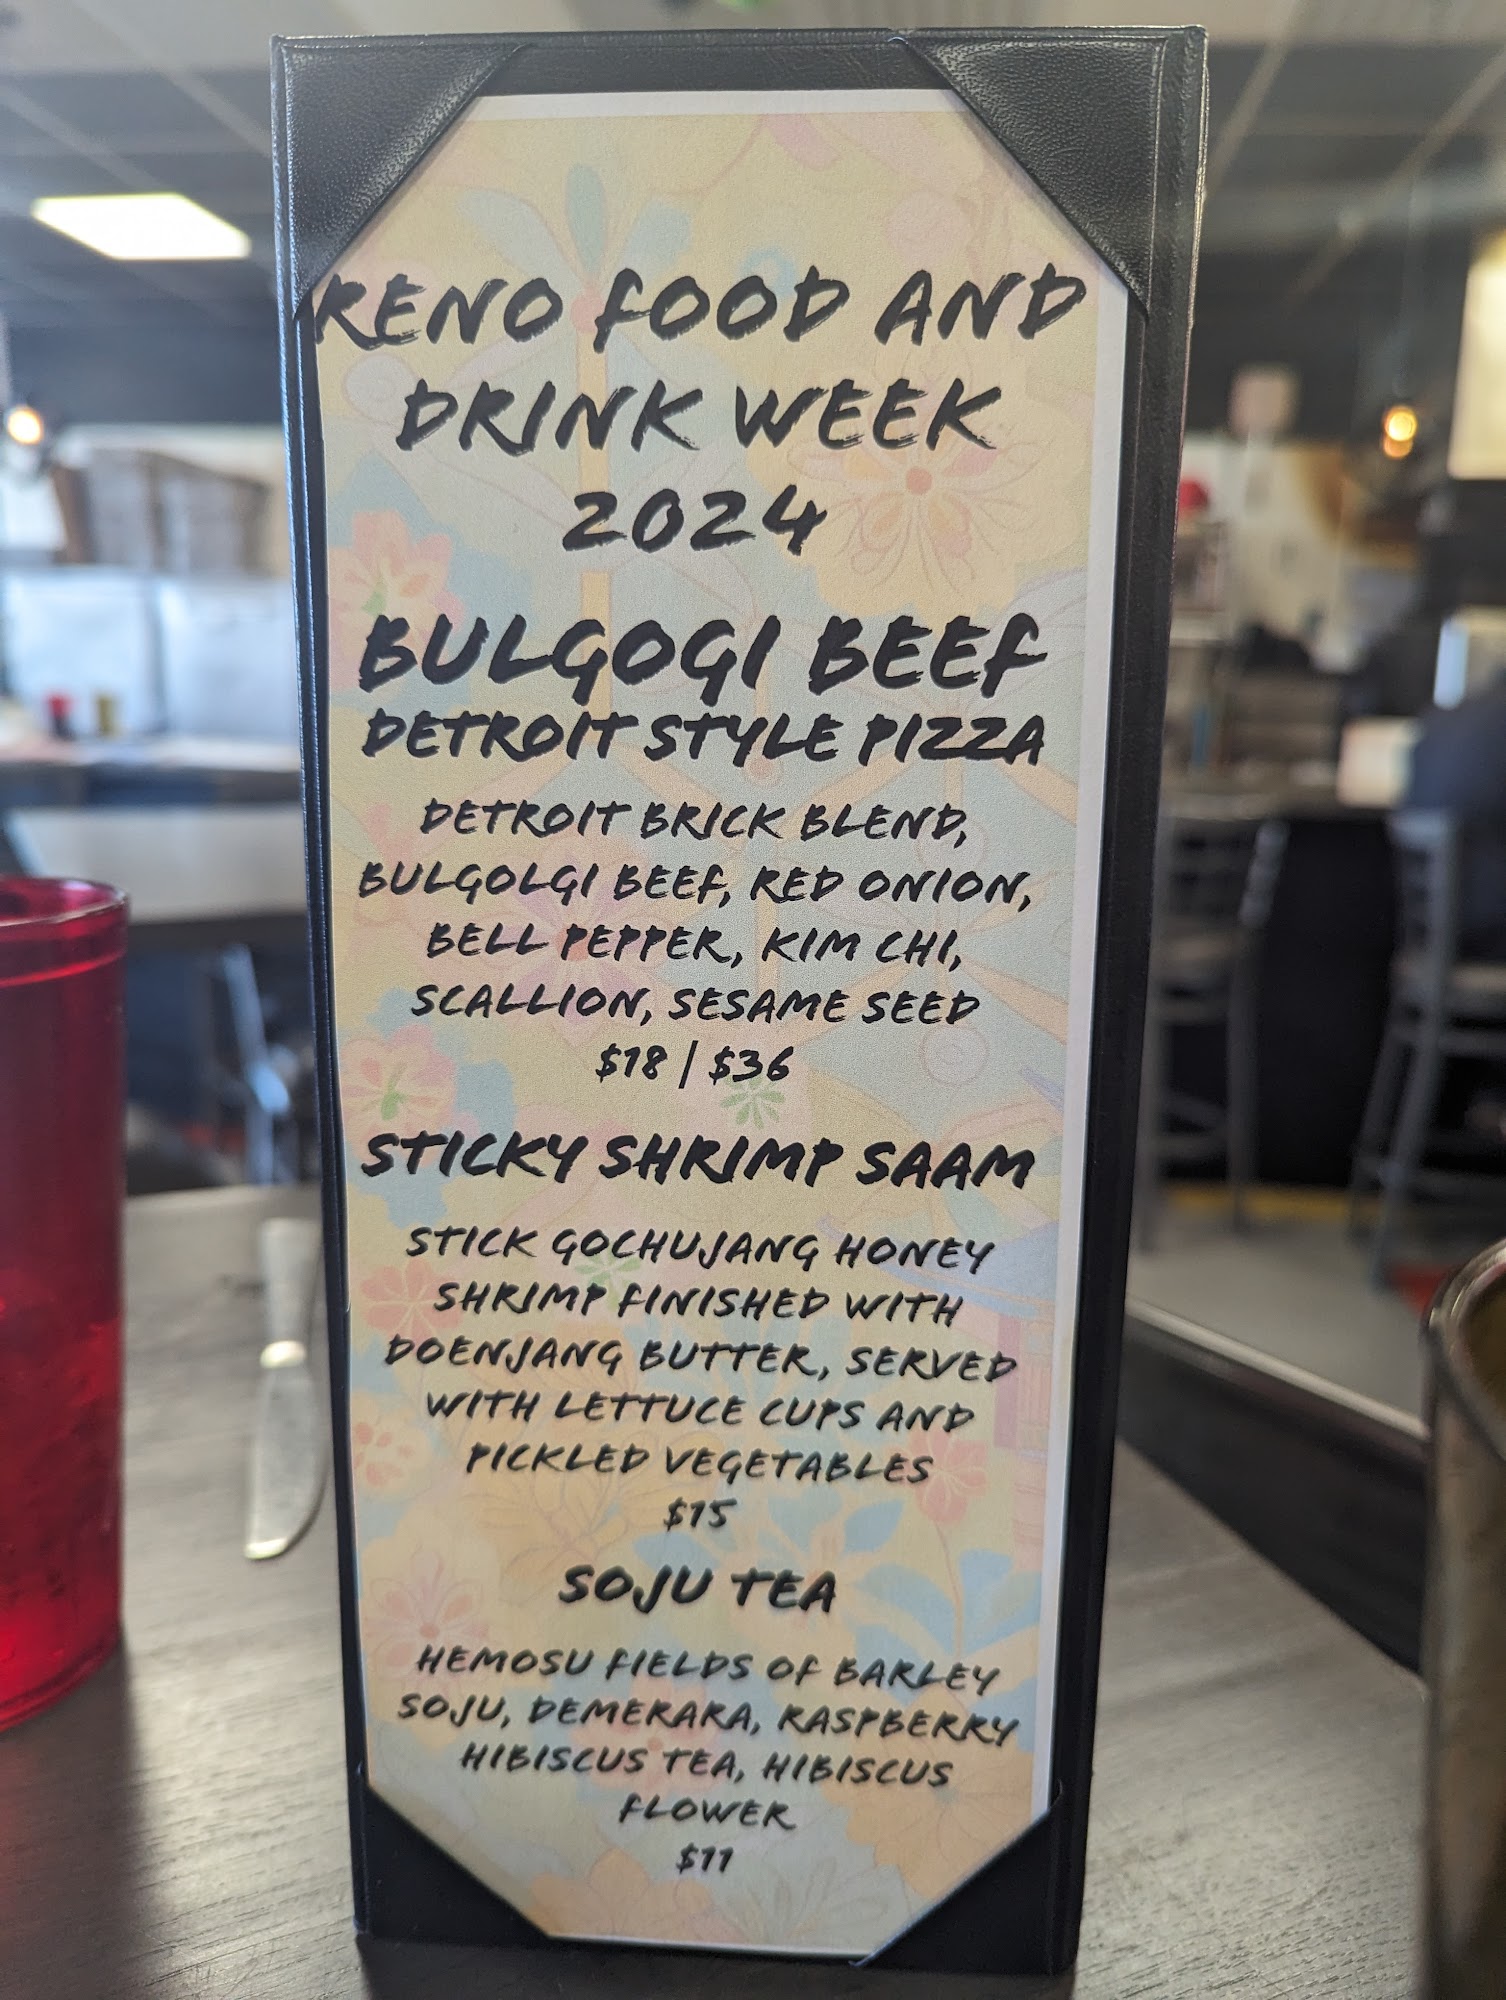 RENO FOOD AND
DRINK WEEK
2024
BULGOGI BEEF
DETROIT STYLE PIZZA
DETROIT BRICK BLEND,
BULGOLGI BEEF, RED ONION,
BELL PEPPER, KIM CHI,
SCALLION, SESAME SEED
$18 | $36
STICKY SHRIMP SAAM
STICK GOCHUJANG HONEY
SHRIMP FINISHED WITH
DOENJANG BUTTER, SERVED
WITH LETTUCE CUPS AND
PICKLED VEGETABLES
$15
SOJU TEA
HEMOSU FIELDS OF BARLEY
SOJU, DEMERARA, RASPBERRY
HIBISCUS TEA, HIBISCUS
FLOWER
$11